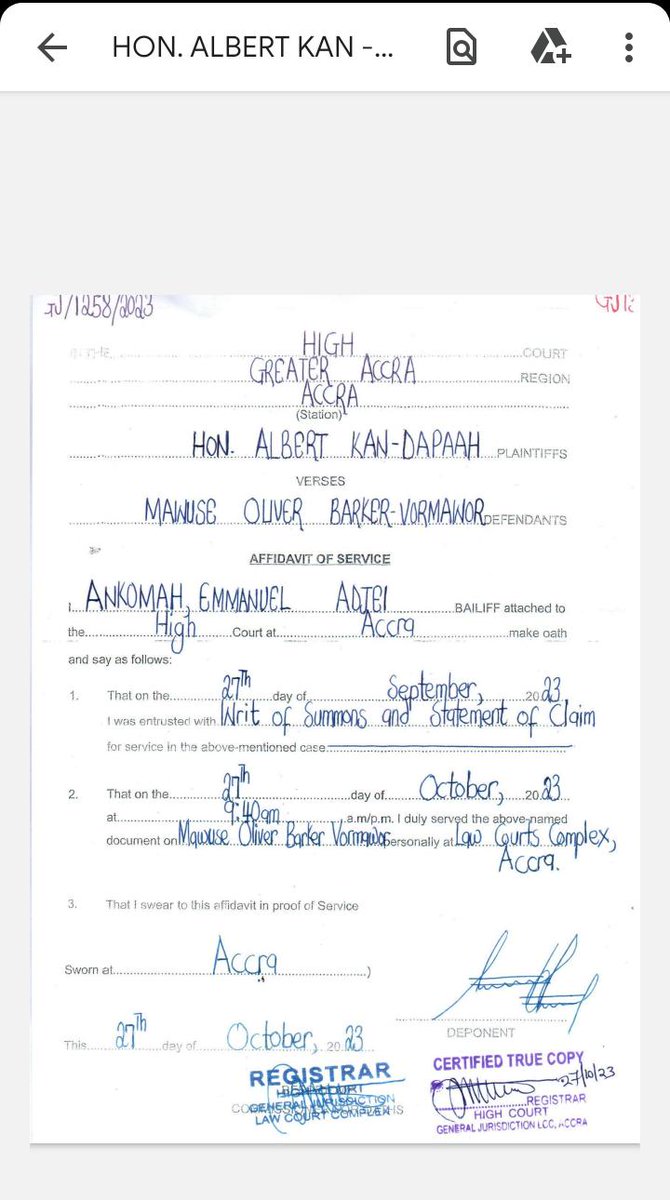 HON. ALBERT KAN -...
GJ/1258/2023
GJ12
IN THE HIGH COURT
GREATER ACCRA REGION
ACCRA
(Station)
HON. ALBERT KAN-DAPAAH PLAINTIFFS
VERSES
MAWUSE OLIVER BARKER-VORMAWOR DEFENDANTS
AFFIDAVIT OF SERVICE
I ANKOMAH, EMMANUEL ADJEI BAILIFF attached to
the High Court at Accra make oath
and say as follows:
1. That on the 27th day of September, 2023
I was entrusted with Writ of Summons and Statement of Claim
for service in the above-mentioned case
2. That on the 27th day of October, 2023
at 9:40am a.m/p.m. I duly served the above-named
document on Mawuse Oliver Barker Vormawor personally at Law Courts Complex,
Accra.
3. That I swear to this affidavit in proof of Service
Sworn at Accra )
DEPONENT
This 27th day of October, 2023
REGISTRAR
GENERAL JURISDICTION
LAW COURT COMPLEX
CERTIFIED TRUE COPY
27/10/23
REGISTRAR
HIGH COURT
GENERAL JURISDICTION LCC, ACCRA